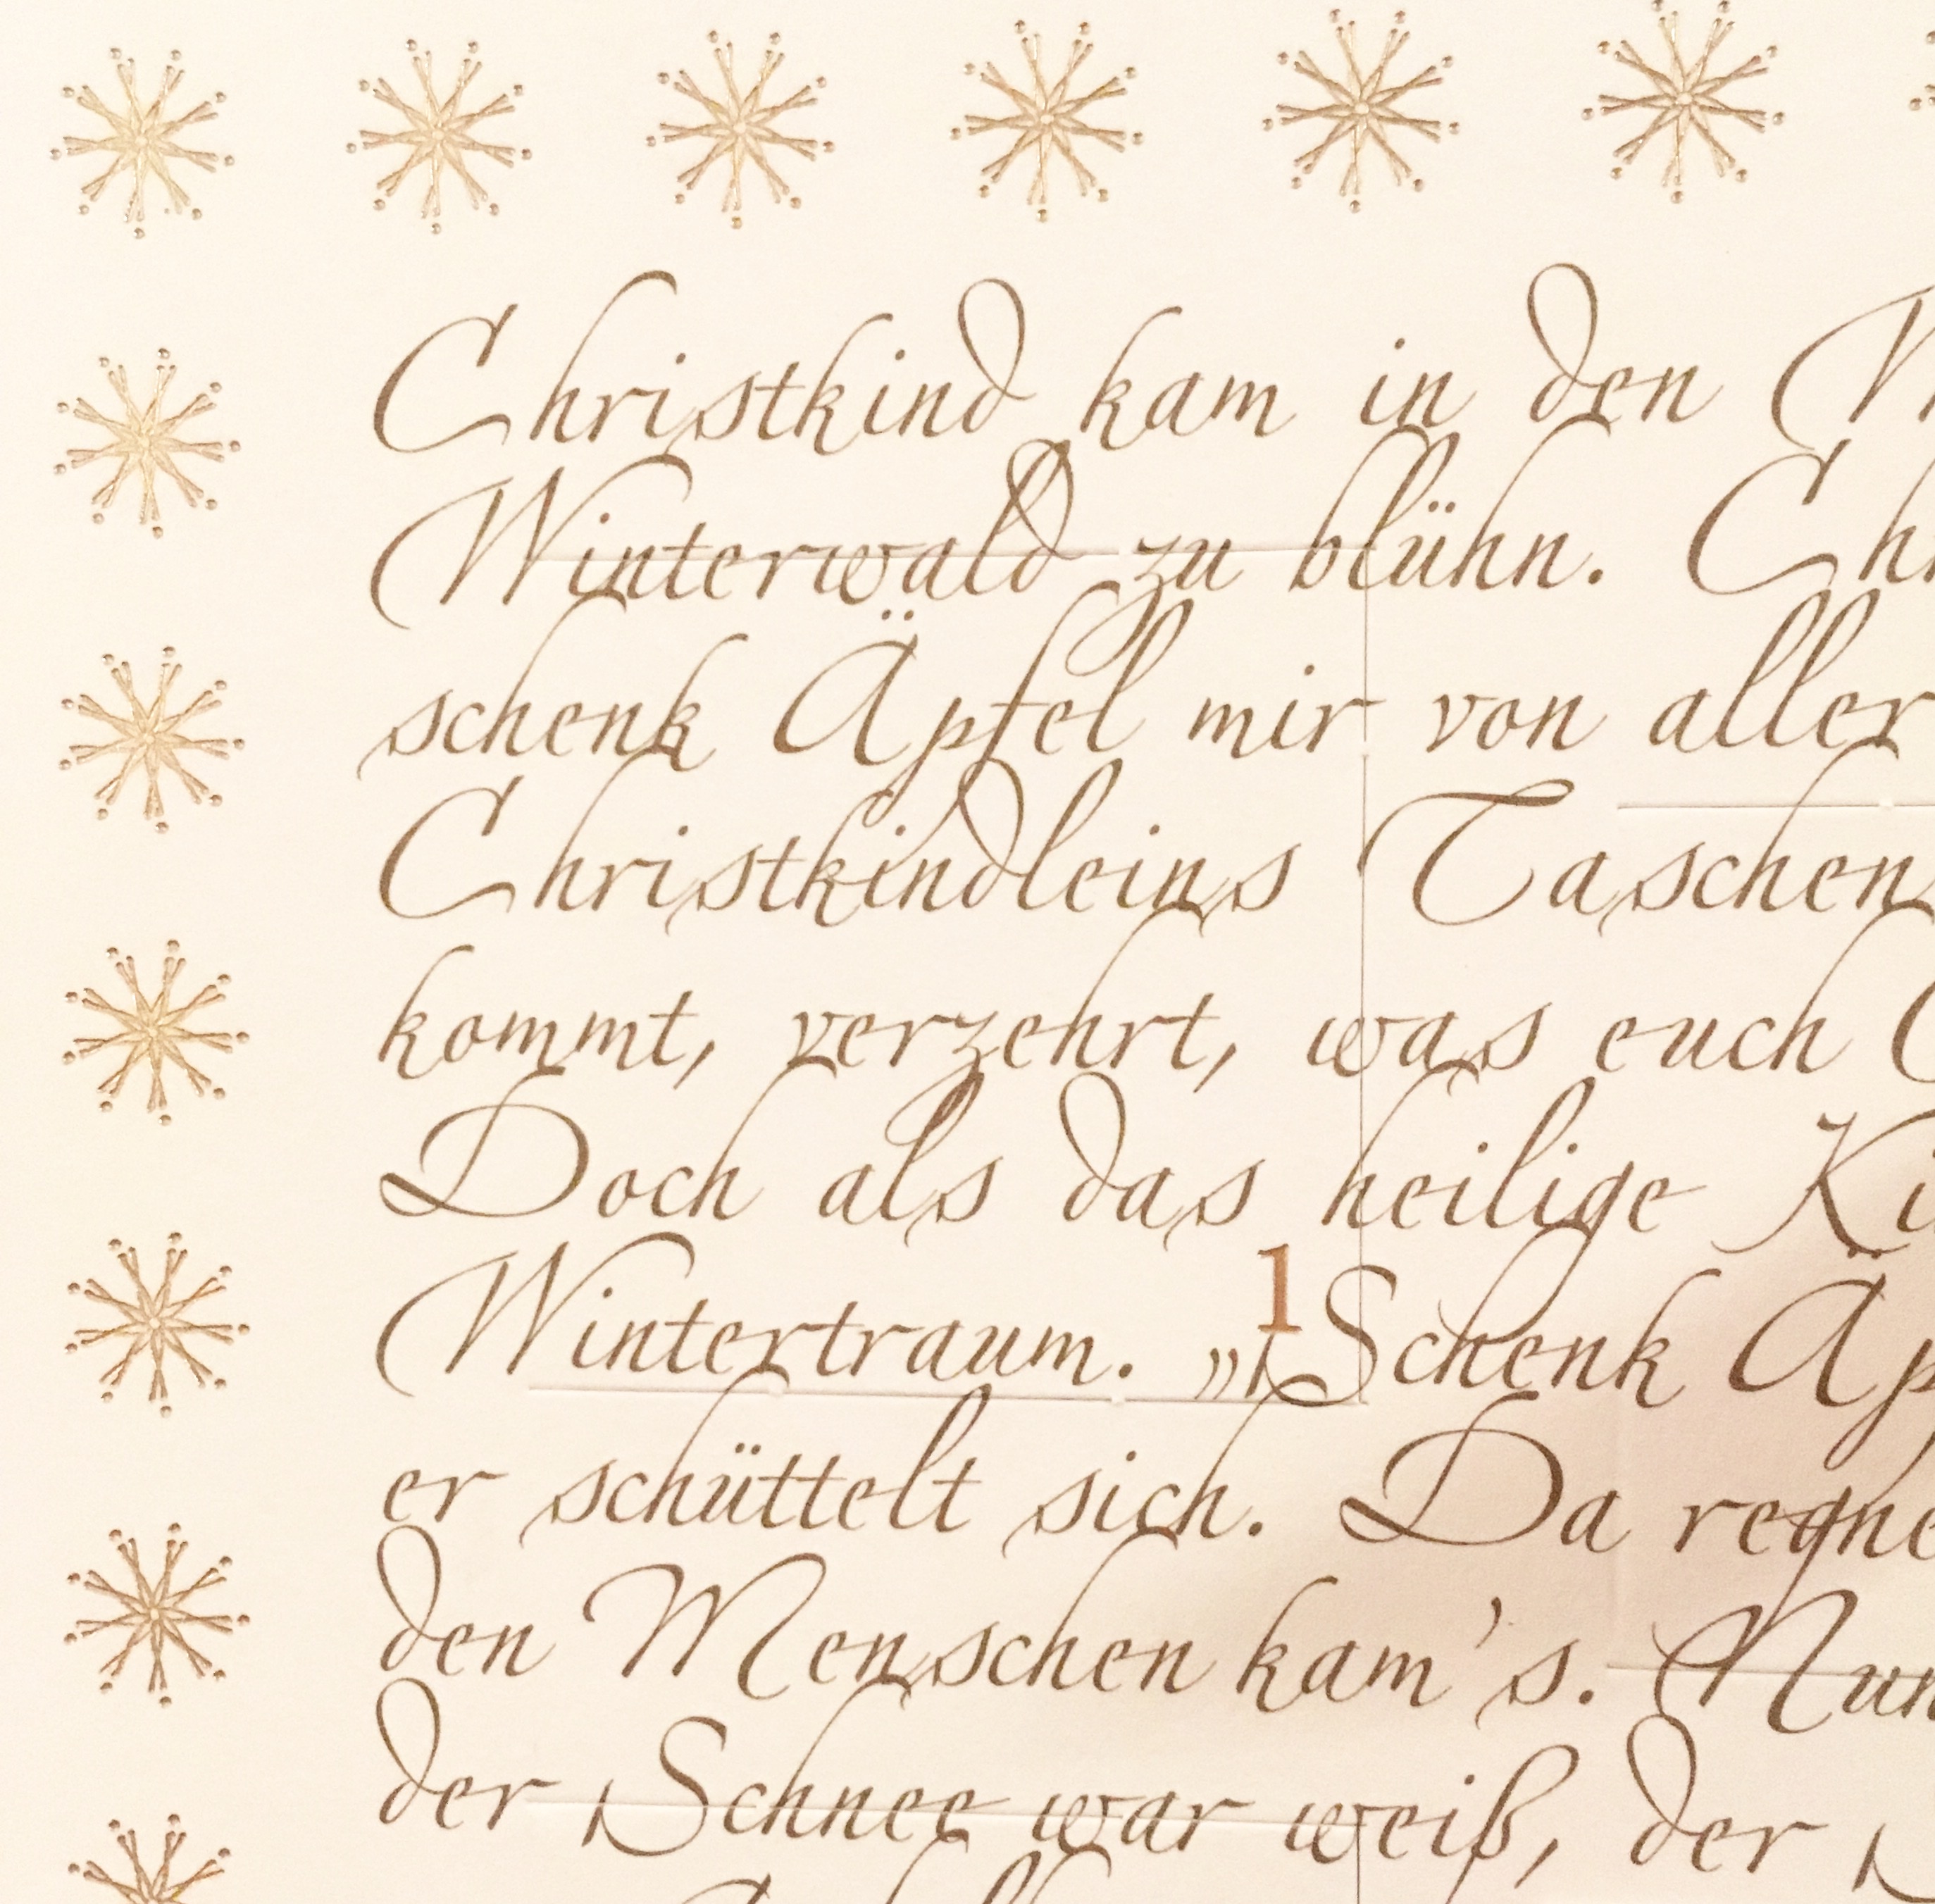 Christkind kam in den
Winterwald zu blühn.
schenk Äpfel mir von aller
Christkindleins Taschen
kommt, verzehrt, was euch
Doch als das heilige
1
Wintertraum. „Schenk
er schüttelt sich. Da
den Menschen kam's.
der Schnee war weiß, der